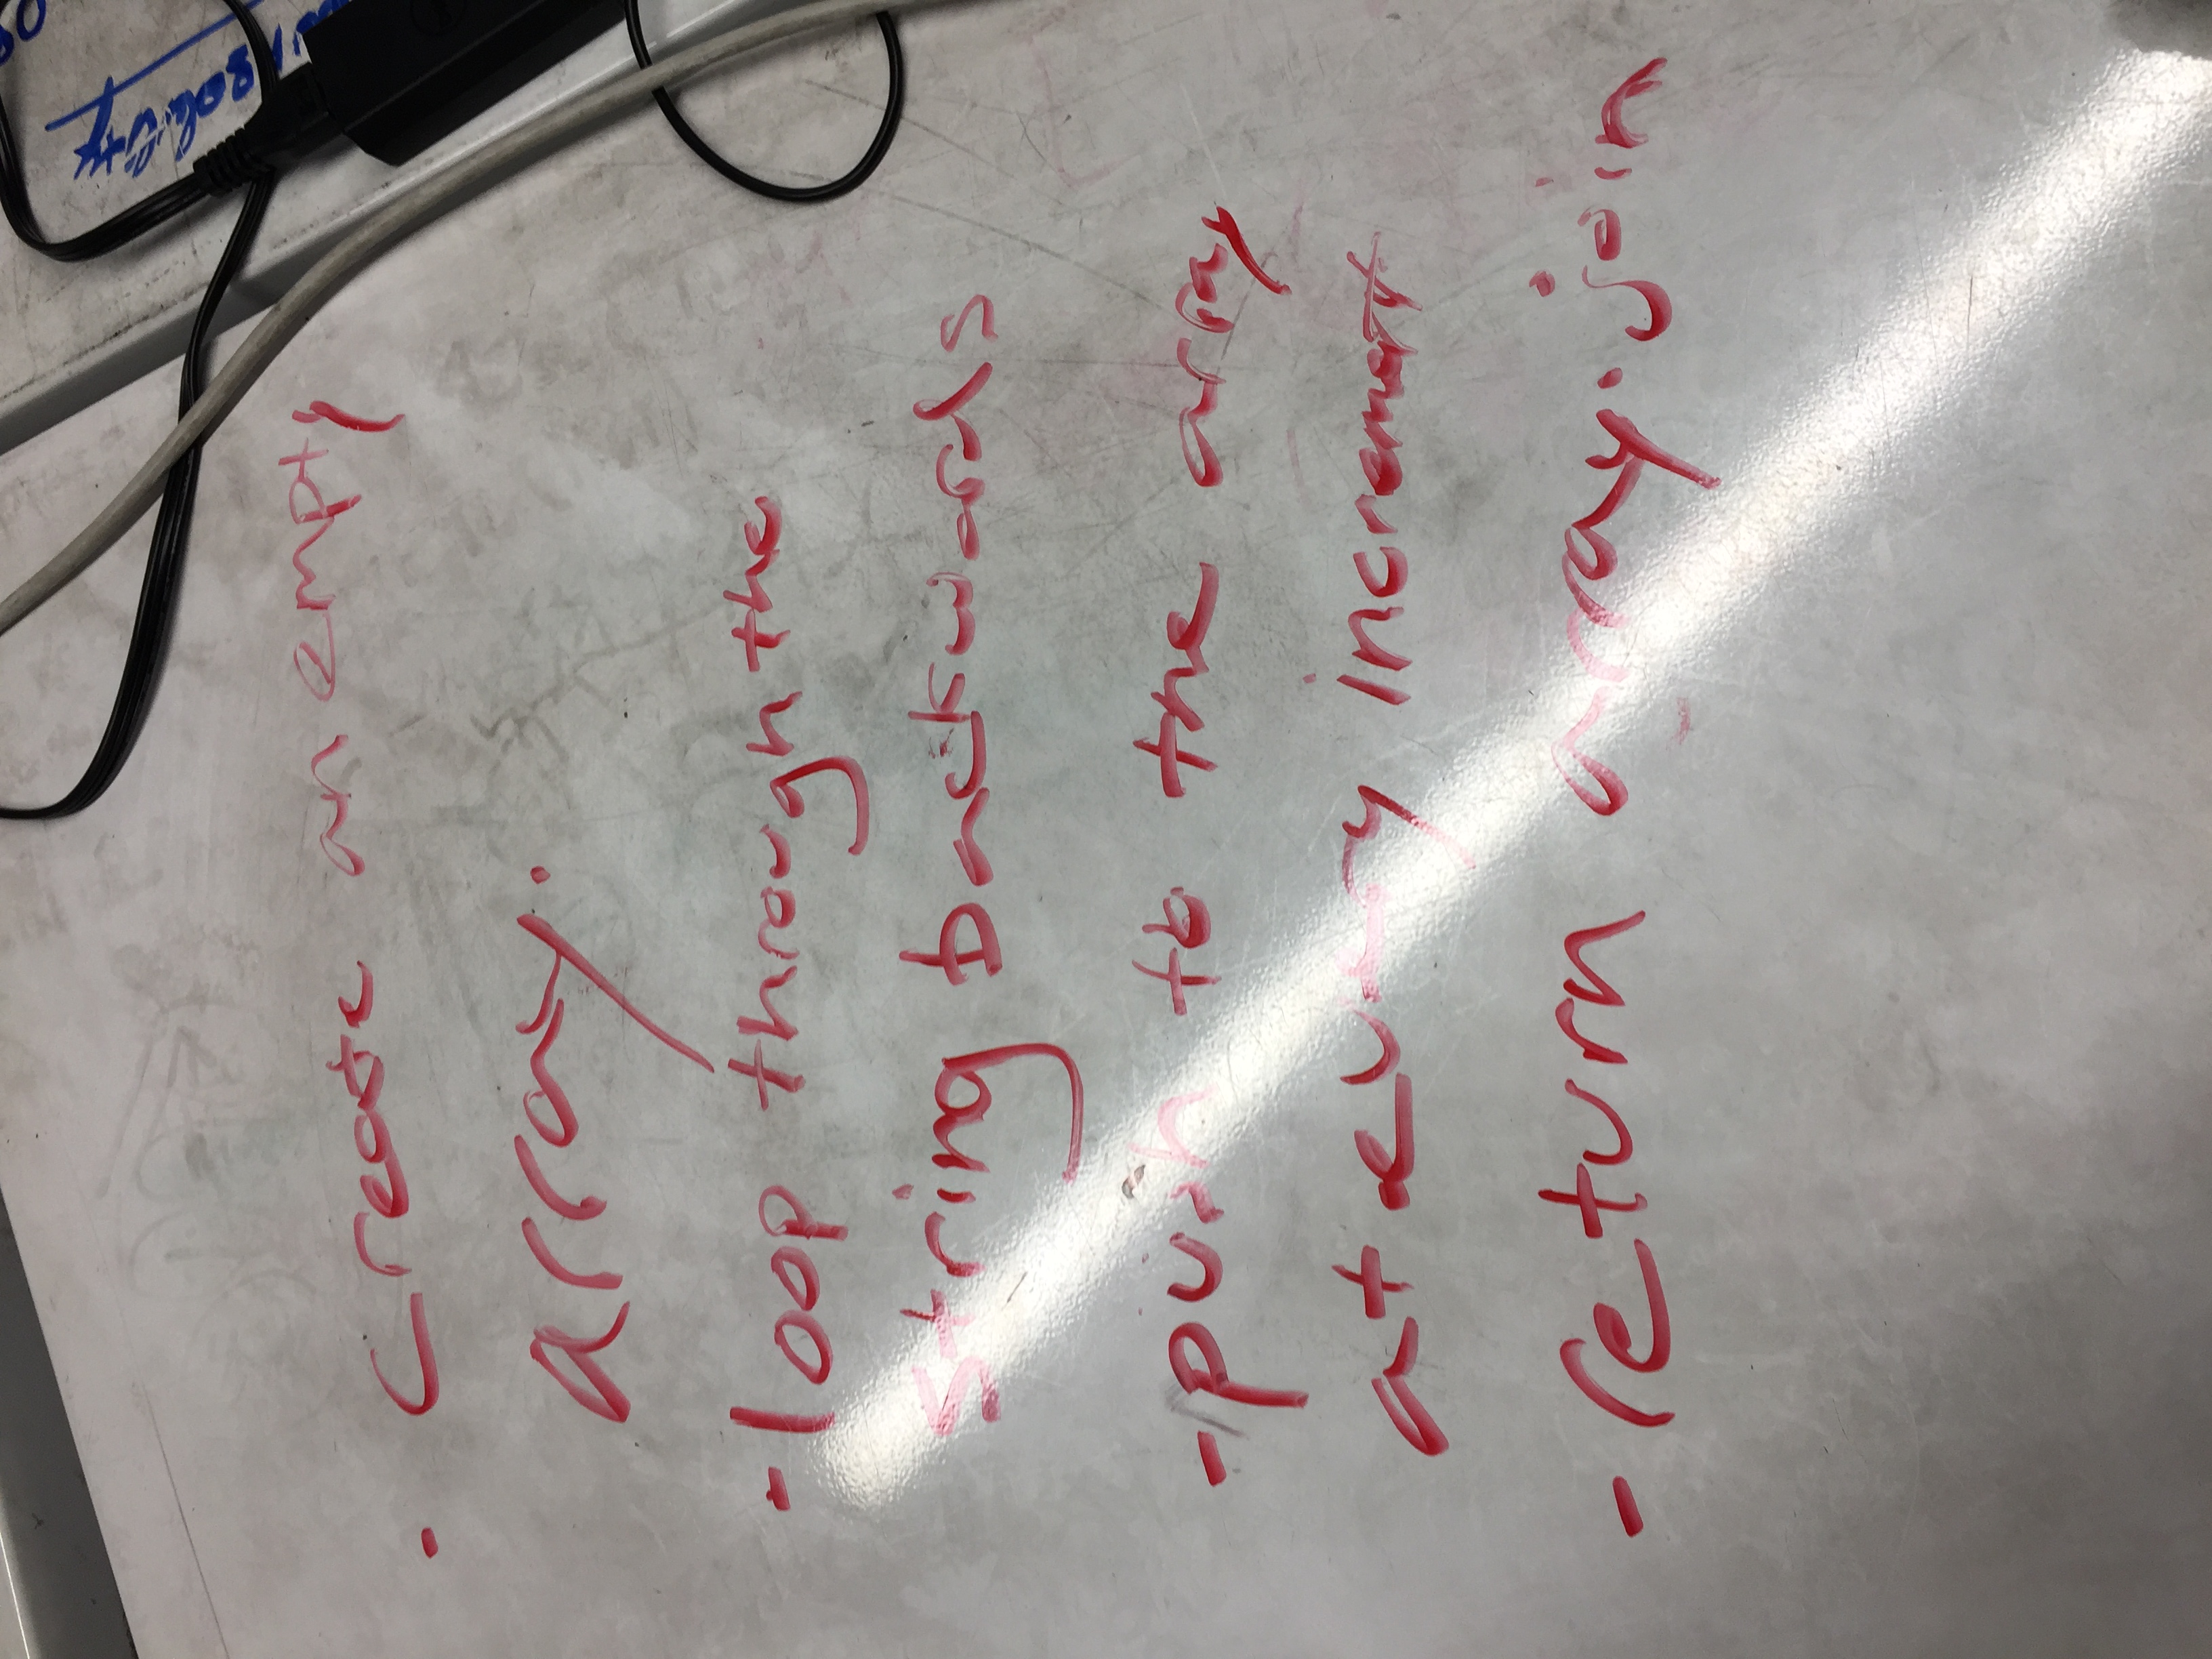 - create an empty
array.
- loop through the
string backwards
- push to the array
at every increment
- return array.join